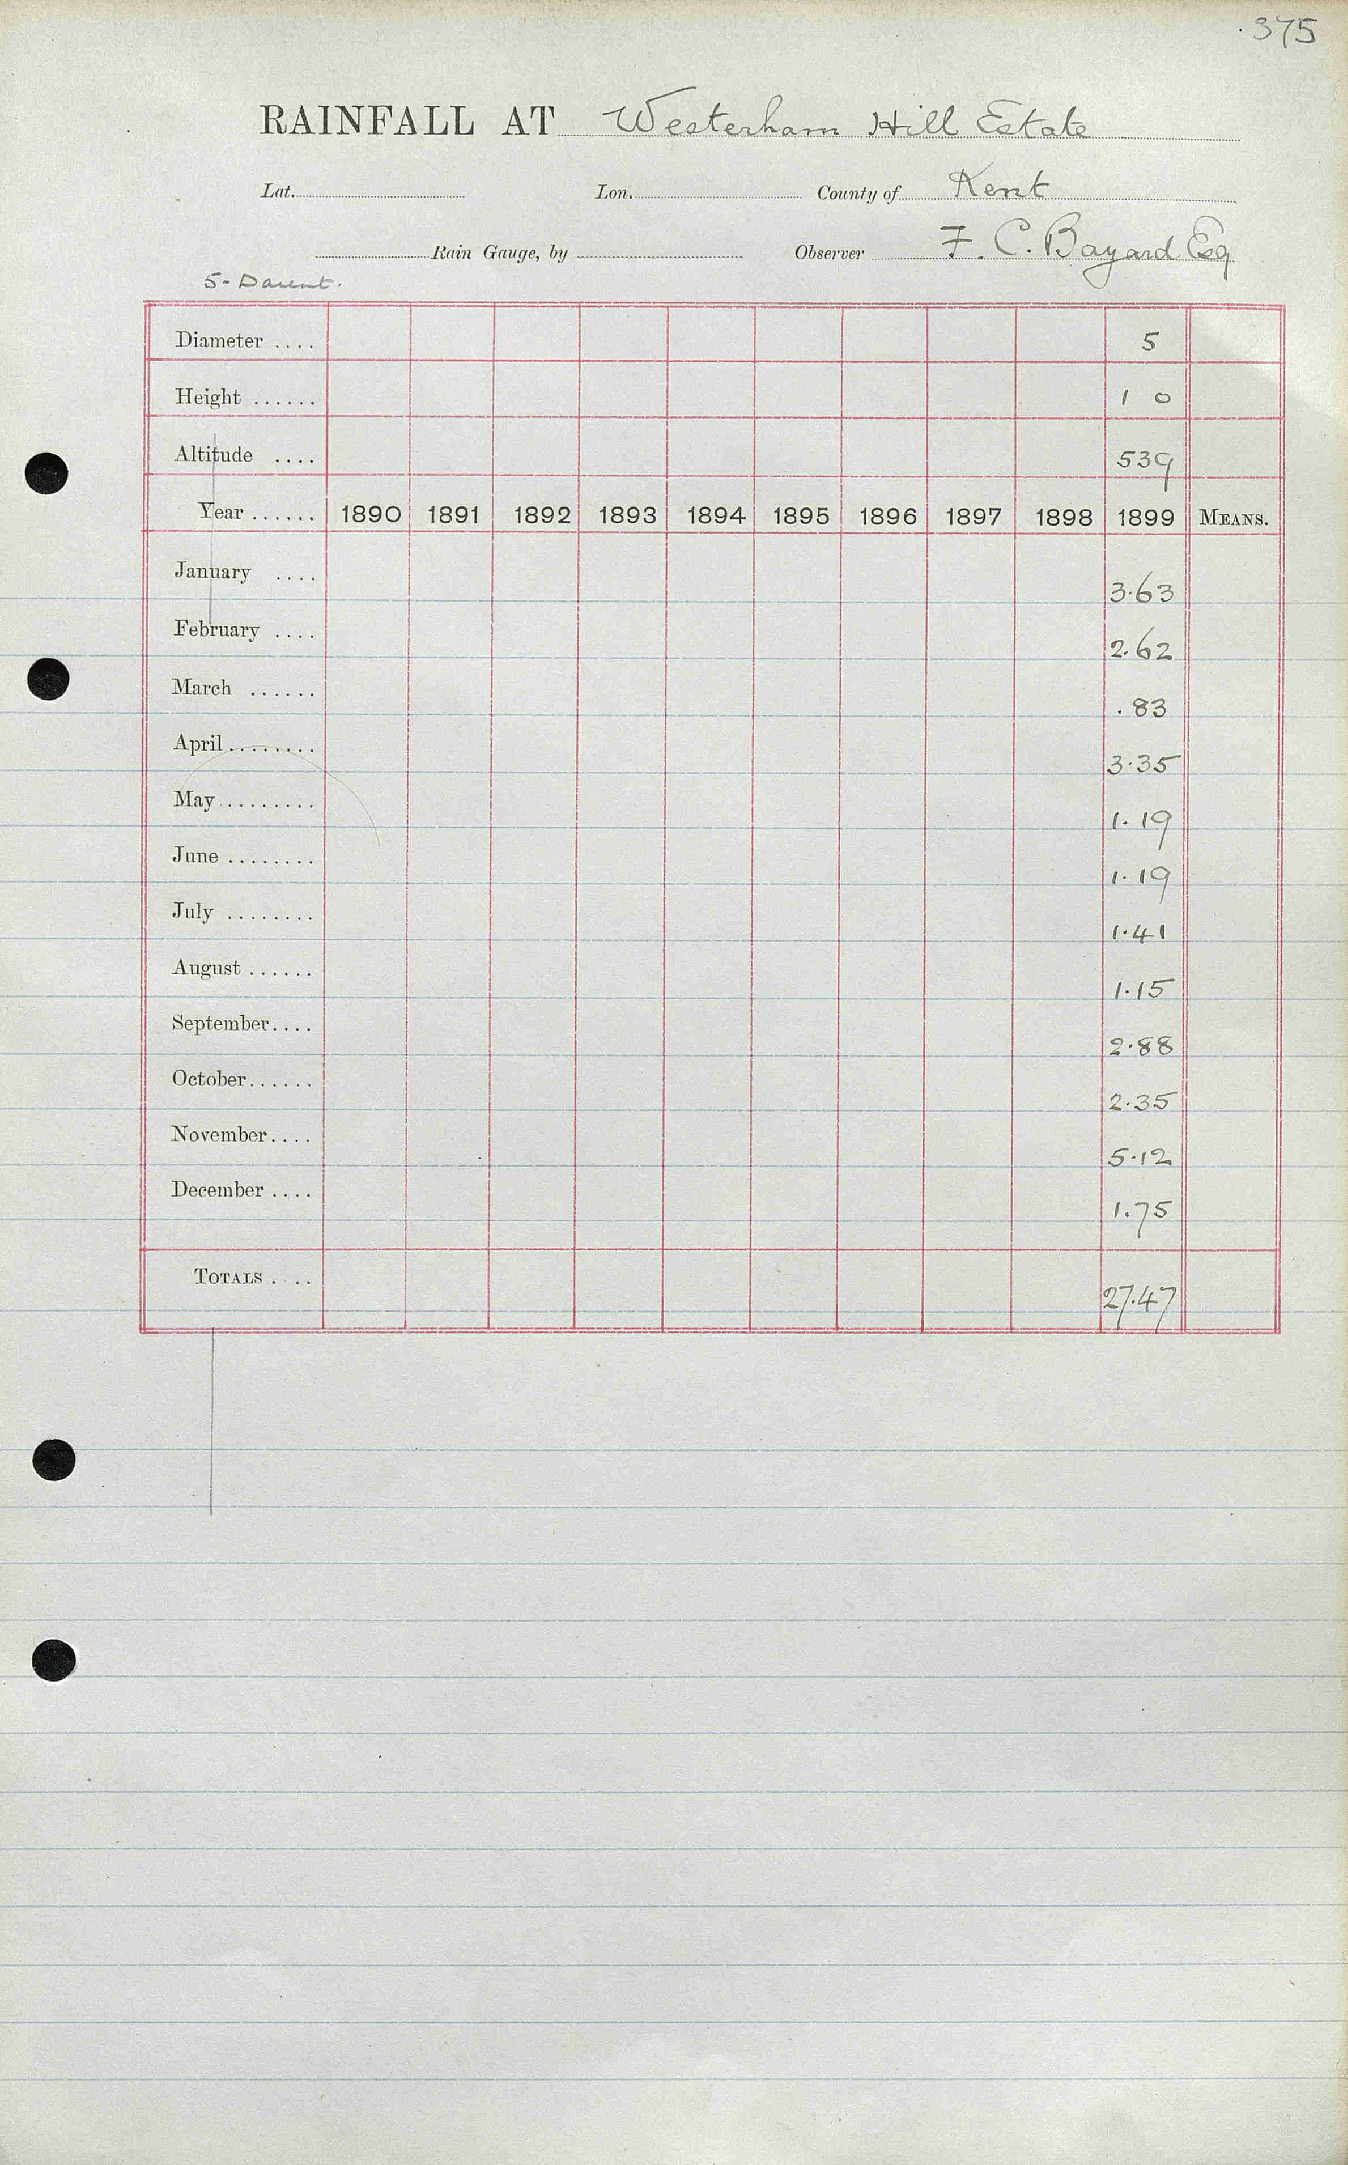 .375
RAINFALL AT Westerham Hill Estate
Lat. Lon. County of Kent
Rain Gauge, by Observer F. C. Bayard Esq
5- Darent.
Diameter .... 5
Height ...... 1 0
Altitude .... 539
Year ...... 1890 1891 1892 1893 1894 1895 1896 1897 1898 1899 MEANS.
January .... 3.63
February .... 2.62
March ...... .83
April ........ 3.35
May ......... 1.19
June ........ 1.19
July ........ 1.41
August ...... 1.15
September .... 2.88
October ...... 2.35
November .... 5.12
December .... 1.75
TOTALS .... 27.47